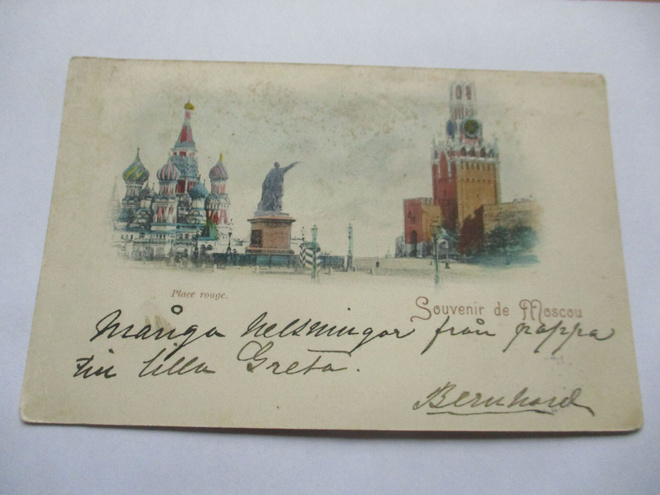 Place rouge.
Souvenir de Moscou
Många helsningar från pappa
till lilla Greta.
Bernhard